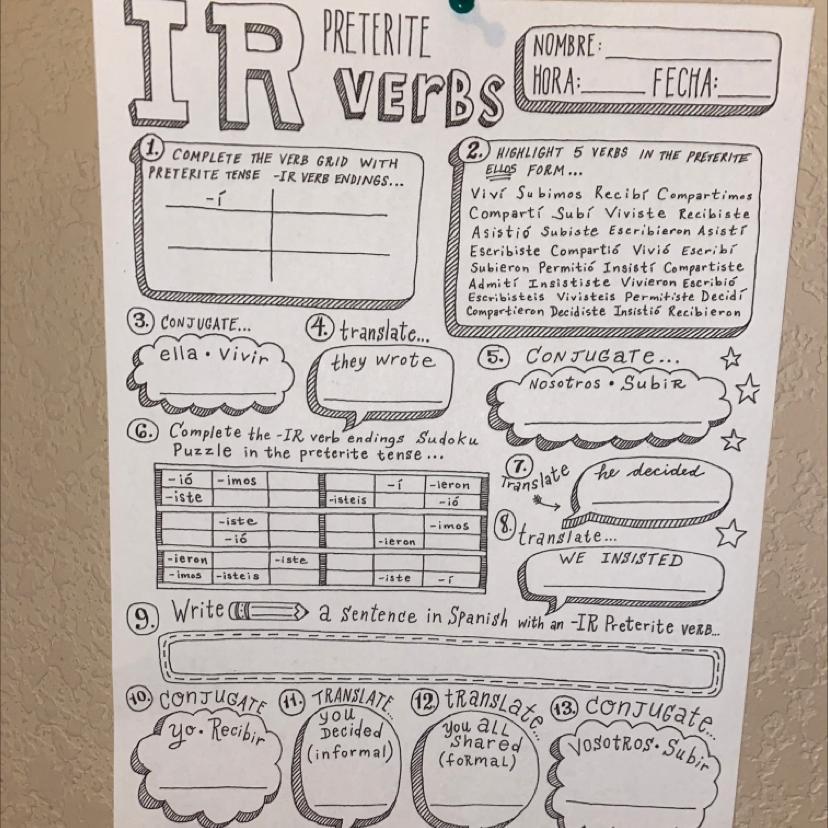 IR PRETERITE VERBS
NOMBRE:
HORA: FECHA:
1. COMPLETE THE VERB GRID WITH
PRETERITE TENSE -IR VERB ENDINGS...
-í
2. HIGHLIGHT 5 VERBS IN THE PRETERITE
ELLOS FORM...
Viví Subimos Recibí Compartimos
Compartí Subí Viviste Recibiste
Asistió Subiste Escribieron Asistí
Escribiste Compartió Vivió Escribí
Subieron Permitió Insistí Compartiste
Admití Insististe Vivieron Escribió
Escribisteis Vivisteis Permitiste Decidí
Compartieron Decidiste Insistió Recibieron
3. CONJUGATE...
ella • Vivir
4. translate...
they wrote
5. CONJUGATE...
Nosotros • Subir
6. Complete the -IR verb endings Sudoku
Puzzle in the preterite tense...
-ió -imos -í -ieron
-iste -isteis -ió
-iste -imos
-ió -ieron
-ieron -iste
-imos -isteis -iste -í
7. Translate
he decided
8. translate...
WE INSISTED
9. Write a sentence in Spanish with an -IR Preterite verb...
10. CONJUGATE
yo • Recibir
11. TRANSLATE...
you
Decided
(informal)
12. translate...
you all
shared
(formal)
13. CONJUGATE...
Vosotros • Subir